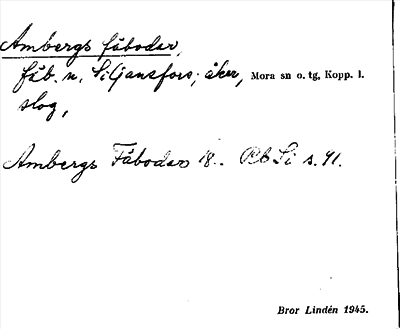 Ambergs fäbodar,
fäb. n. Siljansfors; åker, Mora sn o. tg, Kopp. l.
slog,
Ambergs Fäbodar 18.. RbSi s. 91.
Bror Lindén 1945.